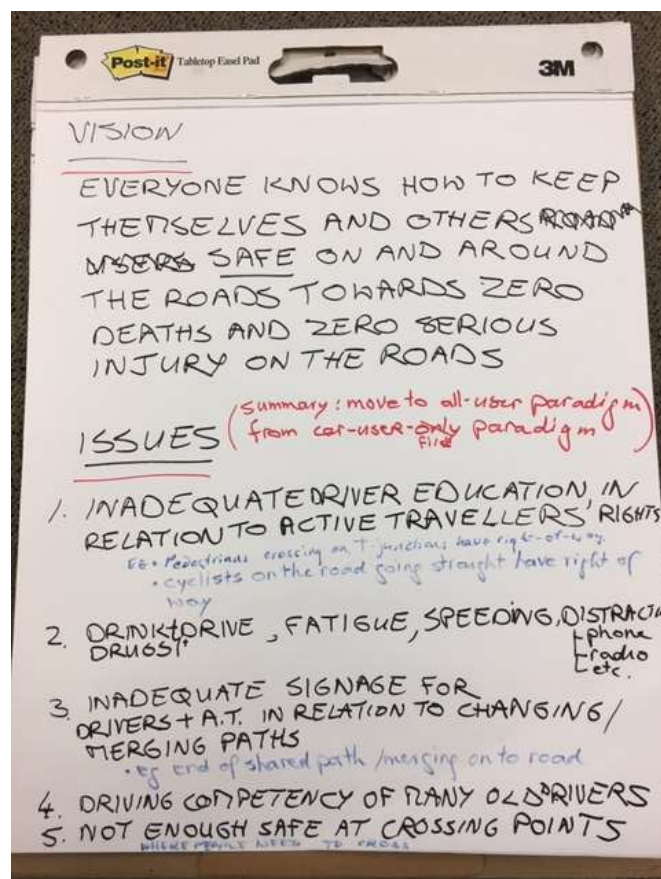 Post-it Tabletop Easel Pad
3M
VISION
EVERYONE KNOWS HOW TO KEEP
THEMSELVES AND OTHERS ROAD
USERS SAFE ON AND AROUND
THE ROADS TOWARDS ZERO
DEATHS AND ZERO SERIOUS
INJURY ON THE ROADS
(summary: move to all-user paradigm
ISSUES from car-user-only paradigm)
first
1. INADEQUATE DRIVER EDUCATION, IN
RELATION TO ACTIVE TRAVELLERS' RIGHTS
EG • Pedestrians crossing on T-junctions have right-of-way.
• cyclists on the road going straight have right of
way
2. DRINK+DRIVE, FATIGUE, SPEEDING, DISTRACTI
DRUGS+ phone
radio
etc.
3. INADEQUATE SIGNAGE FOR
DRIVERS + A.T. IN RELATION TO CHANGING/
MERGING PATHS
• eg end of shared path /merging on to road
4. DRIVING COMPETENCY OF MANY OLD DRIVERS
5. NOT ENOUGH SAFE AT CROSSING POINTS
WHERE PEOPLE NEED TO CROSS